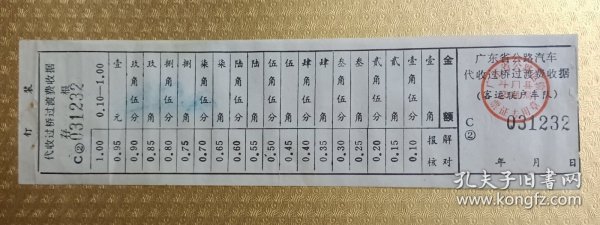 代收过桥过渡费收据
存根
C② 031232
0.10—1.00
壹元 1.00
玖角伍分 0.95
玖角 0.90
捌角伍分 0.85
捌角 0.80
柒角伍分 0.75
柒角 0.70
陆角伍分 0.65
陆角 0.60
伍角伍分 0.55
伍角 0.50
肆角伍分 0.45
肆角 0.40
叁角伍分 0.35
叁角 0.30
贰角伍分 0.25
贰角 0.20
壹角伍分 0.15
壹角 0.10
金额
解对
报核
广东省公路汽车
代收过桥过渡费收据
(客运联户车队)
C② 031232
年 月 日
孔夫子旧书网
www.kongfz.com